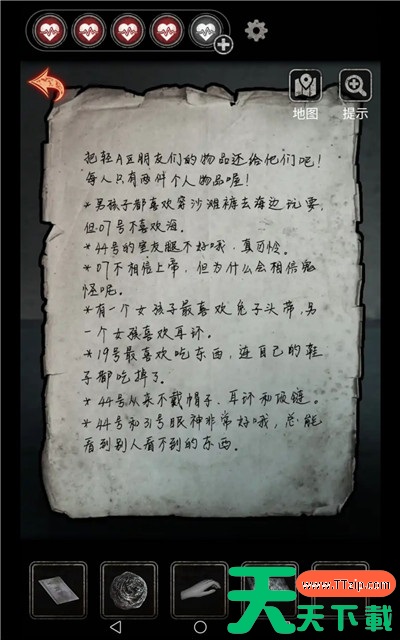 地图
提示
把轻A豆朋友们的物品还给他们吧！
每人只有两件个人物品喔！
*男孩子都喜欢穿沙滩裤去海边玩耍，
但07号不喜欢海。
*44号的室友腿不好哦，真可怜。
*07不相信上帝，但为什么会相信鬼
怪呢。
*有一个女孩子最喜欢兔子头带，另
一个女孩喜欢耳环。
*19号最喜欢吃东西，连自己的鞋
子都吃掉了。
*44号从来不戴帽子、耳环和项链。
*44号和31号眼神非常好哦，总能
看到别人看不到的东西。
www.TTzip.com
天天下載